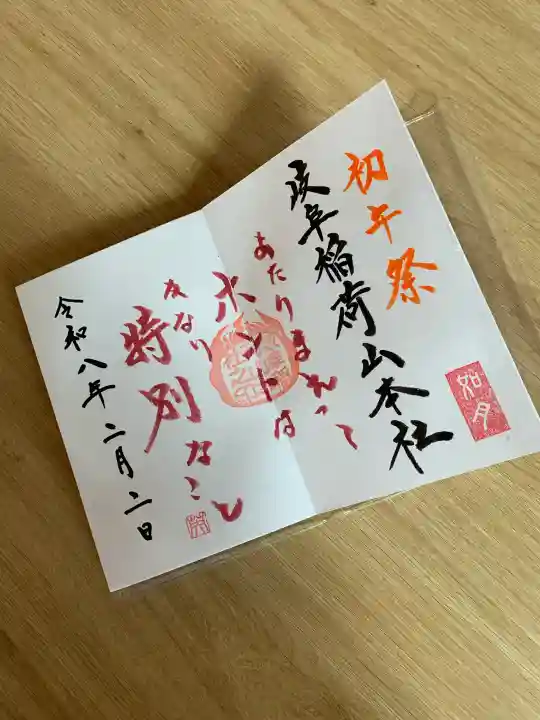 初午祭
岐阜稲荷山本社
如月
あたりまえって
ホントは
かなり
特別なこと
令和八年二月二日